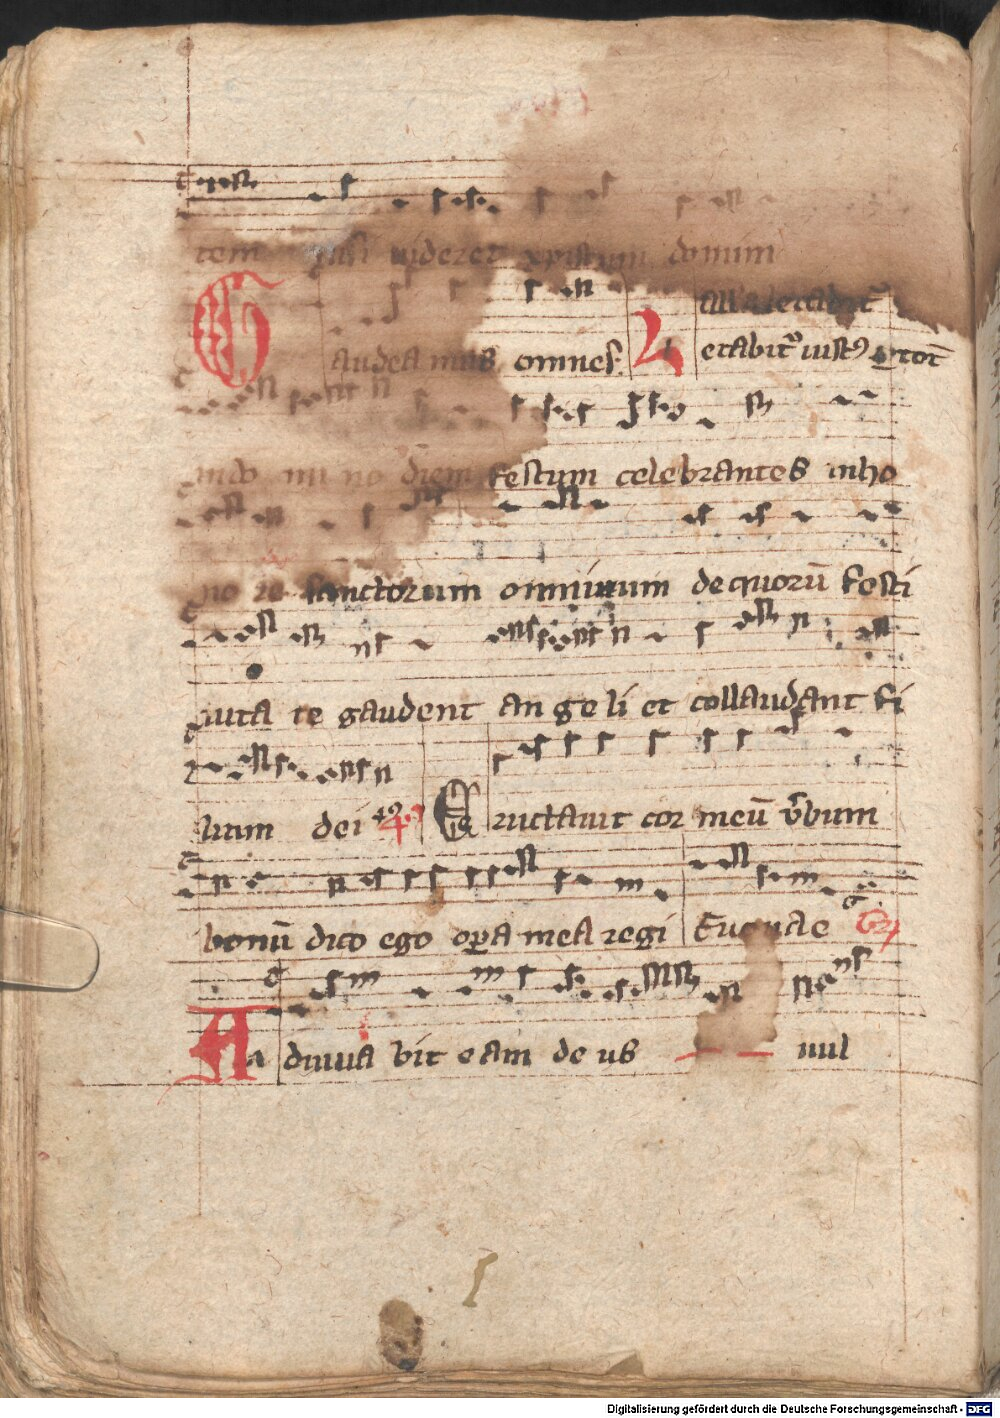 tem nisi videret xpistum dnmm
All'a letabit᷑
Gaudea mus omnes. L etabit᷑ iustꝰ
indo mi no diem festum celebrantes inho
no re sanctorum omnium de quorū festi
uita te gaudent an ge li et collaudant fi
lium dei Eructauit cor meū v̄bum
bonū dico ego oꝑa mea regi Euouae Gr
Aa diuua bit eam de us uul
Digitalisierung gefördert durch die Deutsche Forschungsgemeinschaft - DFG